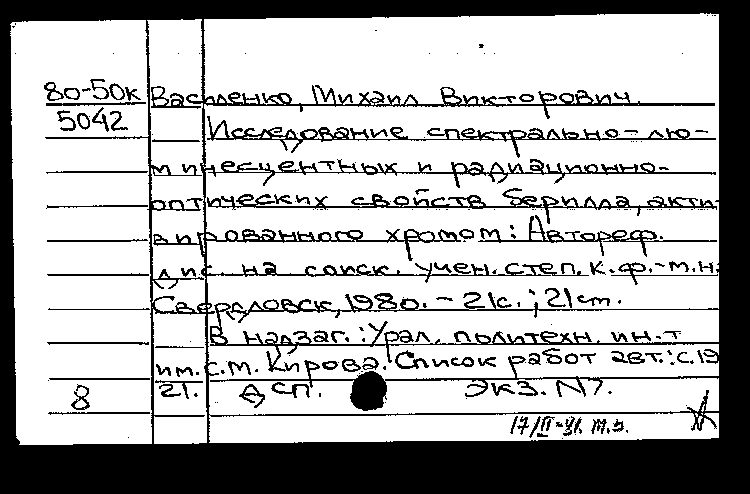 80-50к Василенко, Михаил Викторович.
5042 Исследование спектрально-лю-
минесцентных и радиационно-
оптических свойств берилла, акти-
вированного хромом: Автореф.
дис. на соиск. учен. степ. к.ф.-м.н.
Свердловск, 1980. - 21с.; 21 см.
В надзаг.: Урал. политехн. ин-т
им. С.М. Кирова. Список работ авт.: с.19-
21. Дсп.
8 Экз. N7.